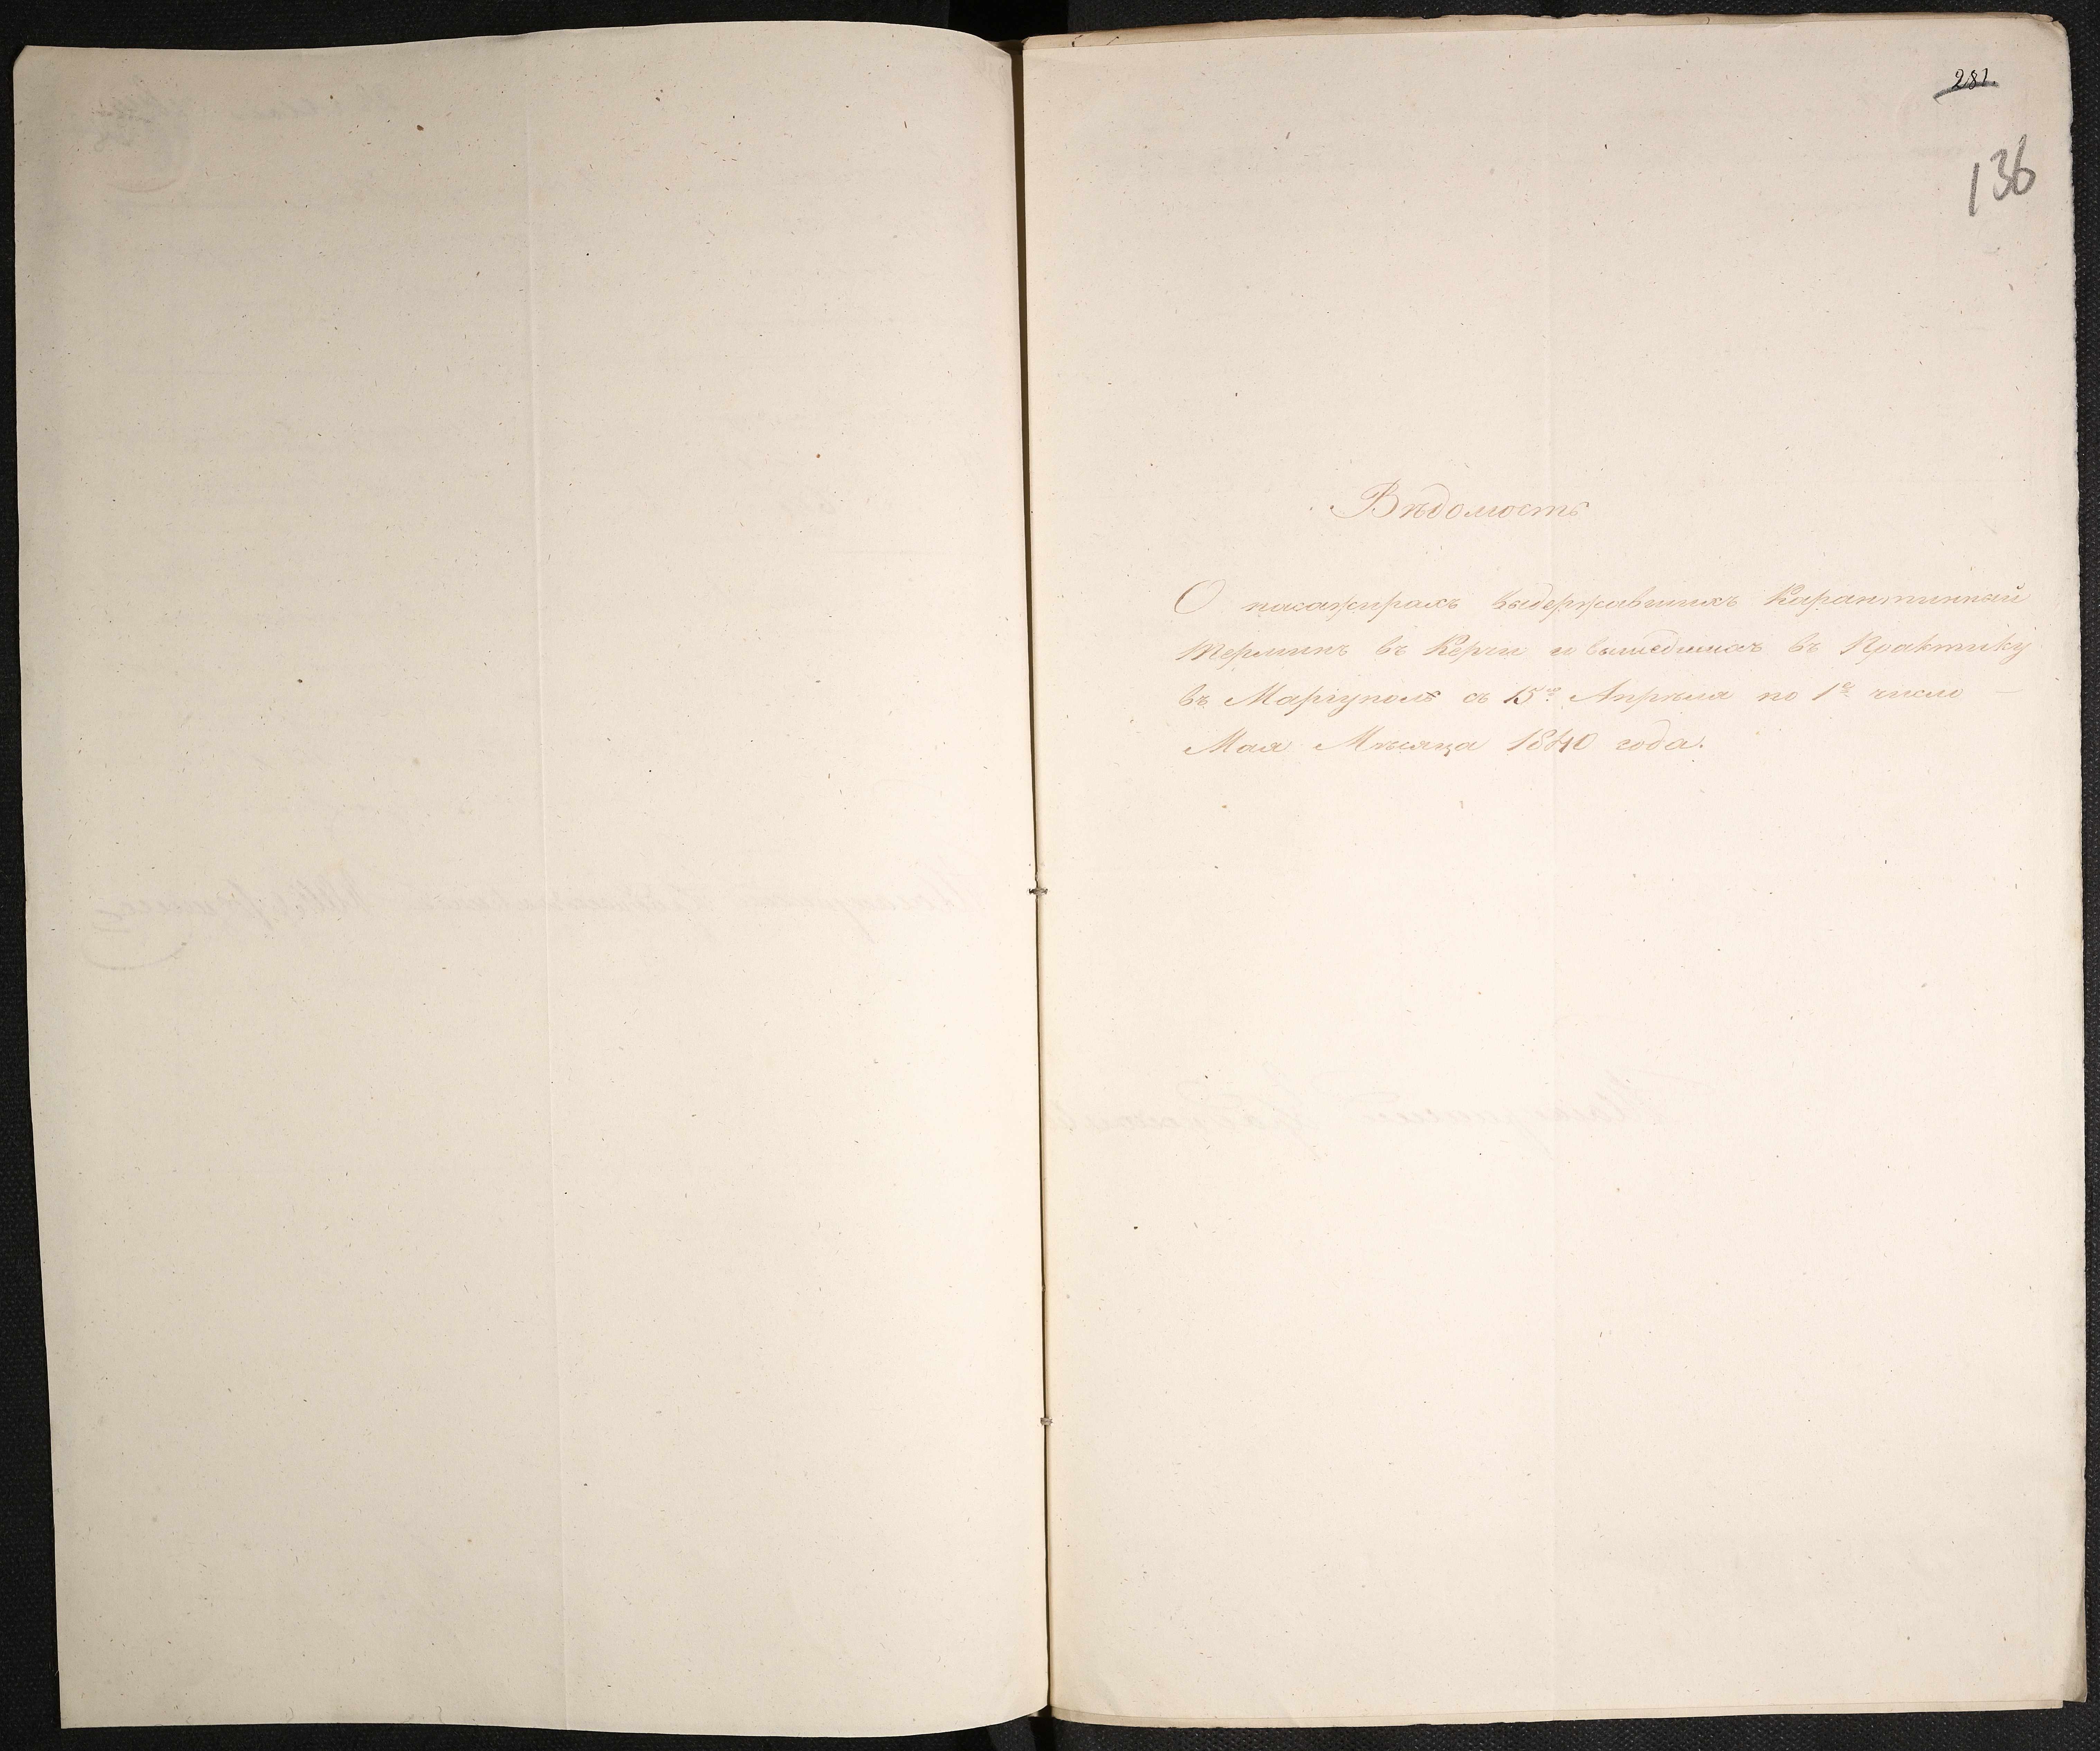 281.
136
Вѣдомость
О пасажирахъ выдержавшихъ Карантинный
терминъ въ Керчи и вышедшихъ въ Практику
въ Мариуполѣ съ 15го Апрѣля по 1е число
Мая Мѣсяца 1840 года.